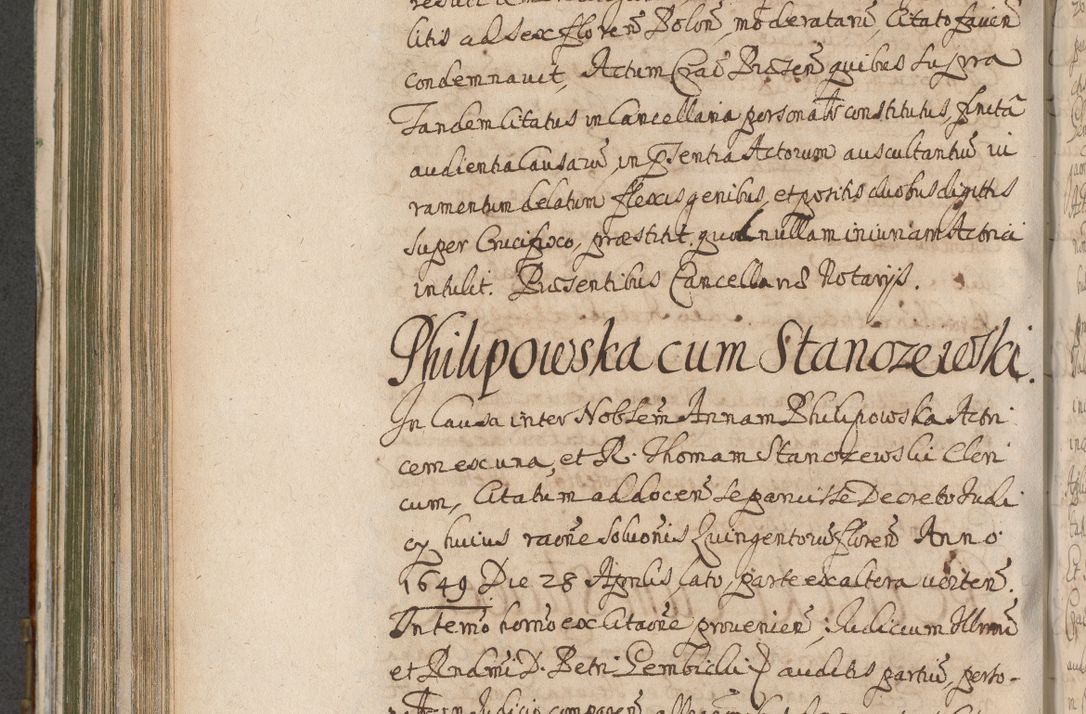 litis ad sex floreñ Poloñ, moderatam, Citato faveñ
condemnavit, Actum Cra͠c Præseñ quibus supra
Tandem Citatus in Cancellaria personałr constitutus, finitã
audientia Causarũ, in p͠sentia Actorum auscultantiũ iu
ramentum delatum flexis genibus, et positis duobus digitis
super Crucifixo, præstitit, quod nullam iniuriam Actrici
intulit. Præsentibus Cancellariæ Notarijs.
Philipowska cum Stanozewski.
In Causa inter Nob͠lem Annam Philipowska Actri
cem ex una, et R. Thomam Stanozewski Cleri
cum, Citatum ad doceñ se paruisse Decreto Judi
cij huius rao͠ne soluo͠nis Quingentorũ floreñ Anno
1649 Die 28 Aprilis lato, parte ex altera verteñ.
In termo͠ horno ex citao͠ne provenieñ; Judicium Illrm͠i
et Rndm͠i D. Petri Gembicki P auditis partiũ, perso-